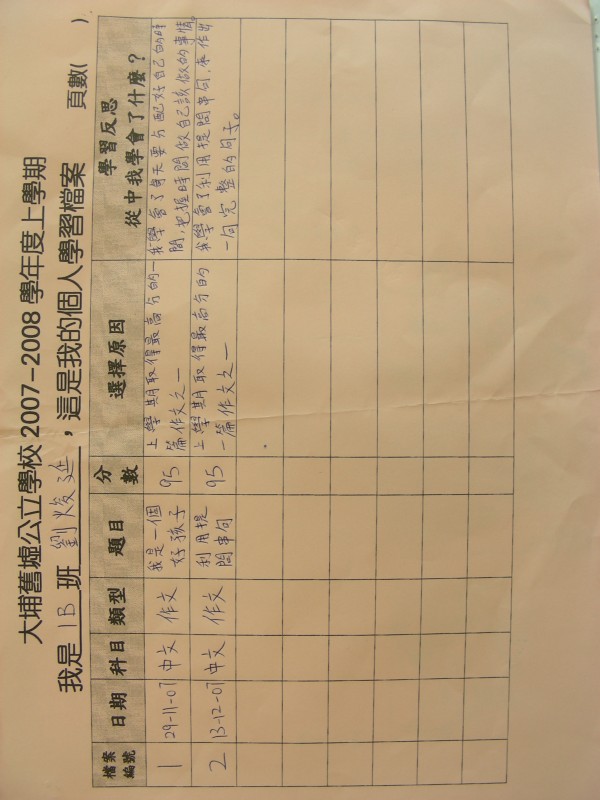 大埔舊墟公立學校 2007-2008 學年度上學期
我是 1B 班 劉焌延 ，這是我的個人學習檔案 頁數( )
檔案編號 日期 科目 類型 題目 分數 選擇原因 學習反思 從中我學會了什麼？
1 29-11-07 中文 作文 我是一個好孩子 95 上學期取得最高分的一篇作文之一 我學會了每天要分配好自己的時間，把握時間做自己該做的事情。
2 13-12-07 中文 作文 利用提問串句 95 上學期取得最高分的一篇作文之一 我學會了利用提問串句，來作出一句完整的句子。